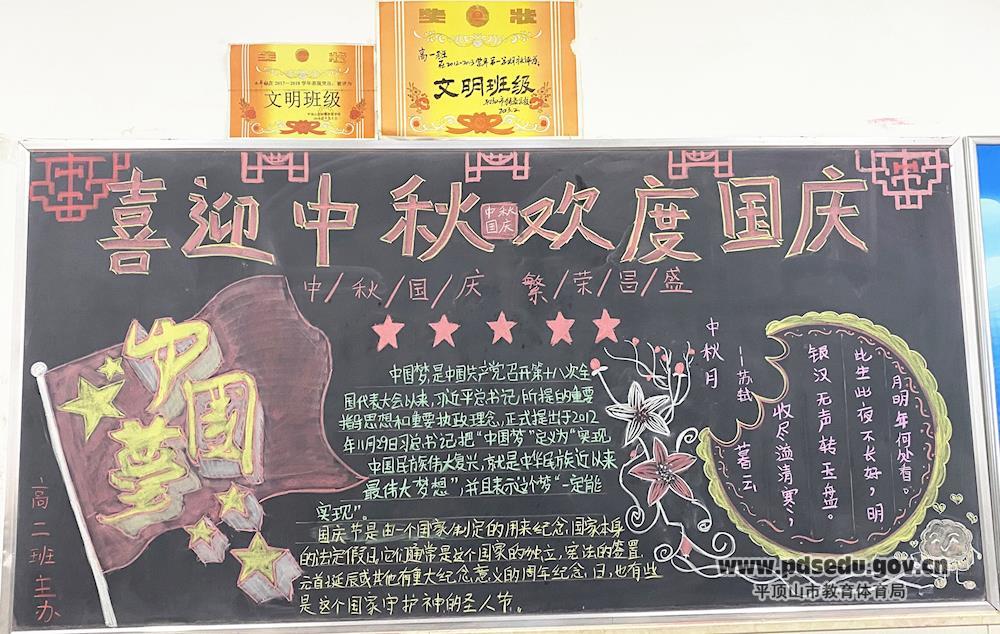 奖状
文明班级
奖状
高一班
文明班级
喜迎中秋欢度国庆
中秋
国庆
中/秋/国/庆 繁/荣/昌/盛
中国梦
高二班主办
中国梦,是中国共产党召开第十八次全
国代表大会以来,习近平总书记所提的重要
指导思想和重要执政理念,正式提出于2012
年11月29日习总书记把"中国梦"定义为"实现
中国民族伟大复兴,就是中华民族近以来
最伟大梦想",并且表示这个梦"一定能
实现"。
国庆节是由一个国家制定的用来纪念国家本身
的法定假日,它们通常是这个国家的独立,宪法的签署
元首诞辰或其他有重大纪念意义的周年纪念日,也有些
是这个国家守护神的圣人节。
中秋月
—苏轼
暮云
收尽溢清寒,
银汉无声转玉盘。
此生此夜不长好,明
月明年何处看。
www.pdsedu.gov.cn
平顶山市教育体育局